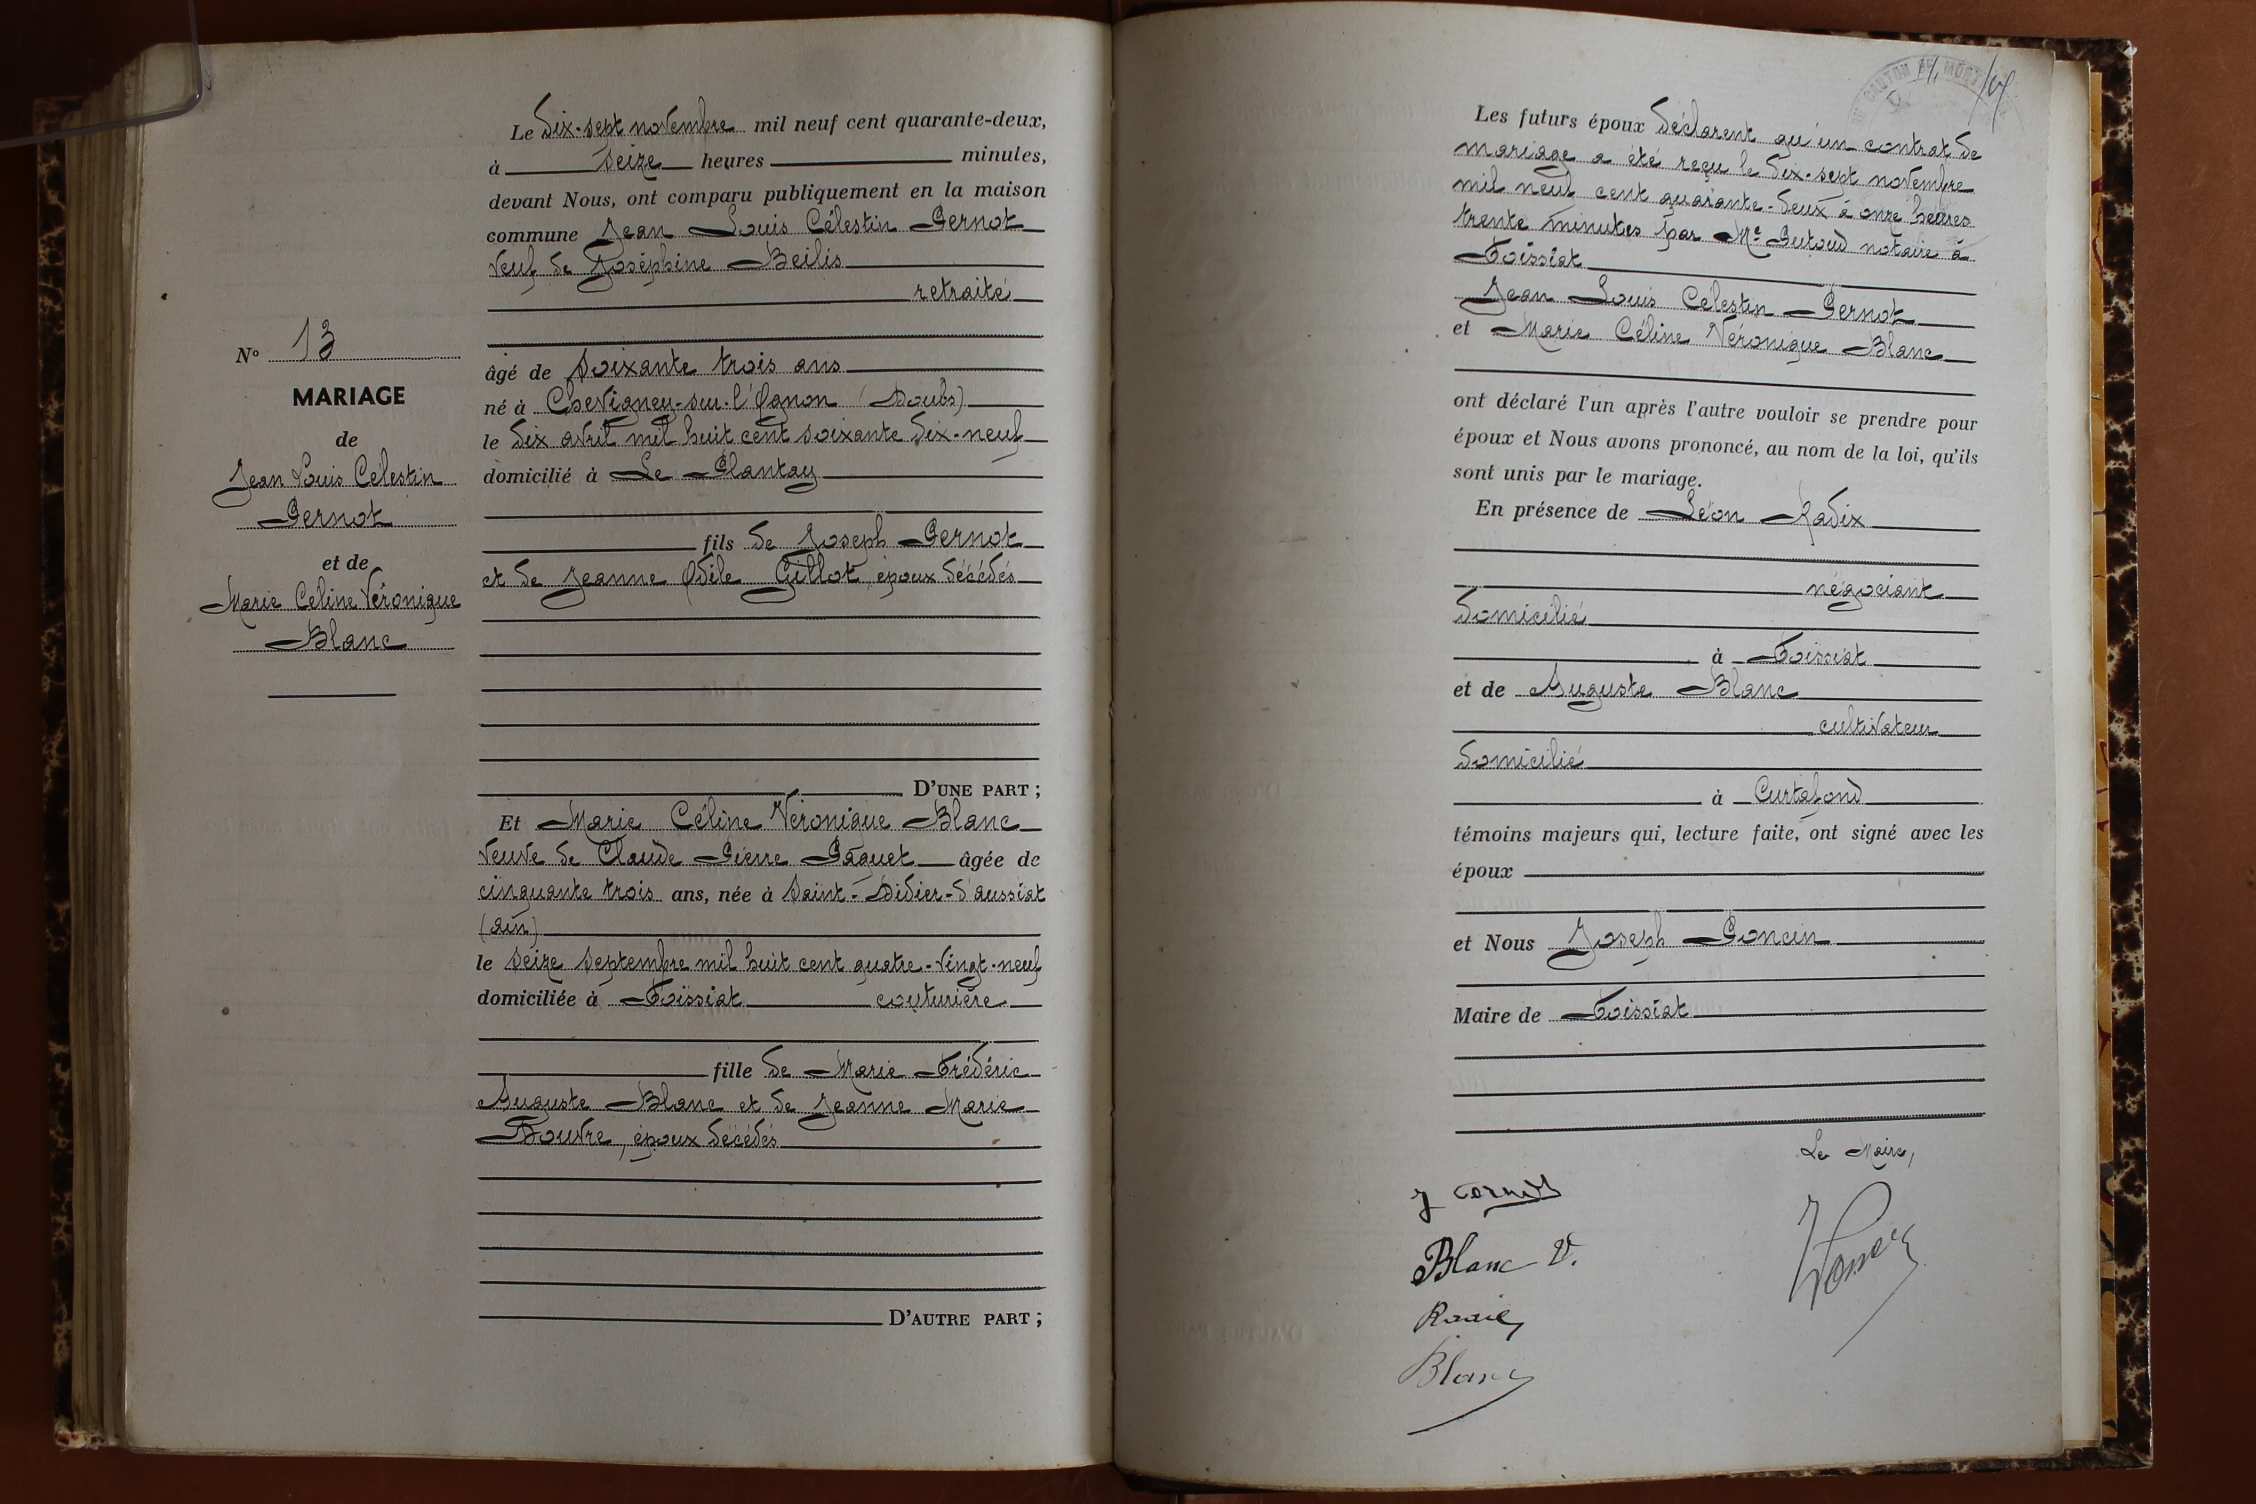 Le dix-sept novembre mil neuf cent quarante-deux,
à seize heures minutes,
devant Nous, ont comparu publiquement en la maison
commune Jean Louis Célestin Pernot
veuf de Joséphine Beilis
retraité
âgé de soixante trois ans
né à Chevigney-sur-l'Ognon (Doubs)
le dix avril mil huit cent soixante dix-neuf
domicilié à Le Plantay
fils de Joseph Pernot
et de Jeanne Odile Gillot, époux décédés
D'UNE PART ;
Et Marie Céline Véronique Blanc
veuve de Claude Pierre Paquet âgée de
cinquante trois ans, née à Saint-Didier-d'aussiat
(ain)
le seize septembre mil huit cent quatre-vingt-neuf
domiciliée à Foissiat couturière
fille de Marie Frédéric
Auguste Blanc et de Jeanne Marie
Douvre, époux décédés
D'AUTRE PART ;
N° 13
MARIAGE
de
Jean Louis Célestin
Pernot
et de
Marie Céline Véronique
Blanc
Les futurs époux déclarent qu'un contrat de
mariage a été reçu le dix-sept novembre
mil neuf cent quarante-deux à onze heures
trente minutes par Me notaire à
Foissiat
Jean Louis Célestin Pernot
et Marie Céline Véronique Blanc
ont déclaré l'un après l'autre vouloir se prendre pour
époux et Nous avons prononcé, au nom de la loi, qu'ils
sont unis par le mariage.
En présence de Léon Radix
négociant
domicilié
à Foissiat
et de Auguste Blanc
cultivateur
domicilié
à Curtafond
témoins majeurs qui, lecture faite, ont signé avec les
époux
et Nous Joseph Poncin
Maire de Foissiat
Le Maire,
J Pernot
Blanc V.
Radix
Blanc